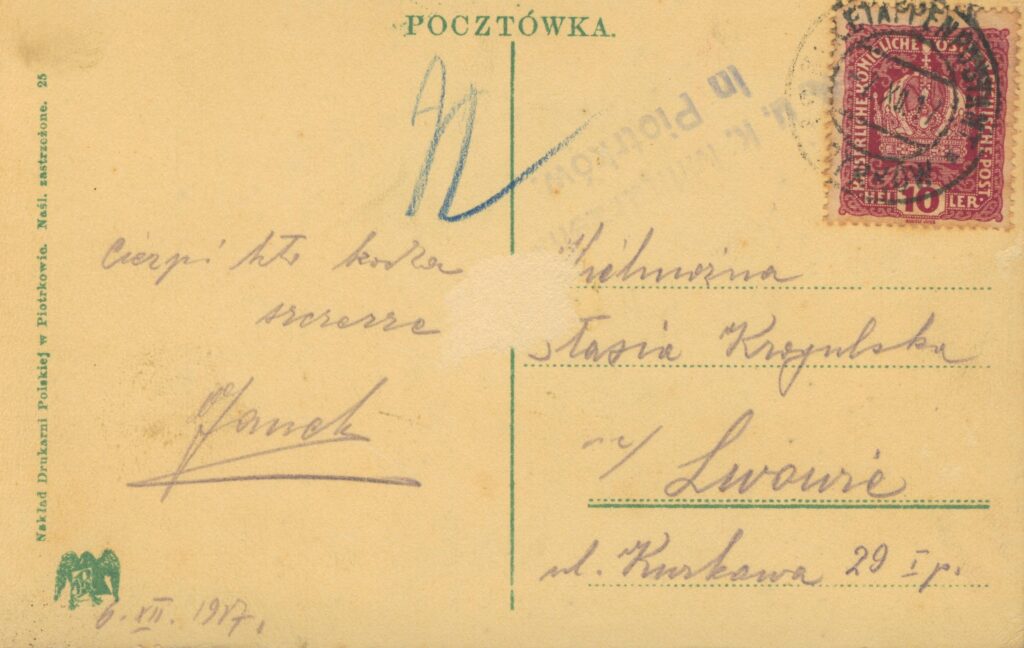 POCZTÓWKA.
K. u. K. Mil
in Piotrków
ETAPPENPOSTAMT
KAISERLICHE KÖNIGLICHE POST
ÖSTERREICHISCHE POST
HELLER
10
Nakład Drukarni Polskiej w Piotrkowie. Naśl. zastrzeżone. 25
Cierpi kto kocha
szczerze
Janek
6. XII. 1917.
Wielmożna
Stasia Krogulska
we/ Lwowie
ul. Kurkowa 29 I p.